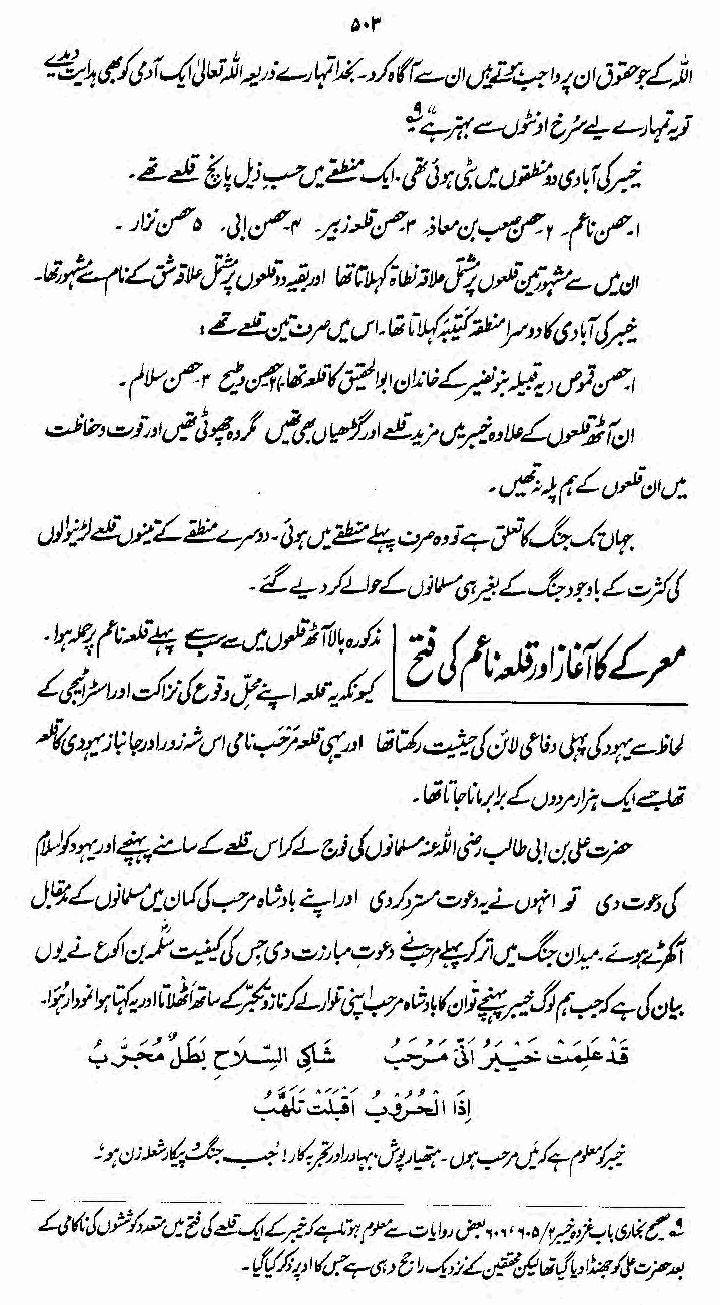 ۵۰۳
اللہ کے جو حقوق ان پر واجب ہوتے ہیں ان سے آگاہ کرو۔ بخدا تمہارے ذریعہ اللہ تعالیٰ ایک آدمی کو بھی ہدایت دیدے
تو یہ تمہارے لیے سُرخ اونٹوں سے بہتر ہے"۔۹
خیبر کی آبادی دو منطقوں میں بٹی ہوئی تھی۔ ایک منطقے میں حسب ذیل پانچ قلعے تھے۔
۱۔ حصن ناعم۔ ۲۔ حصن صعب بن معاذ۔ ۳۔ حصن قلعہ زبیر۔ ۴۔ حصن ابی۔ ۵۔ حصن نزار۔
ان میں سے مشہور تین قلعوں پر مشتمل علاقہ نطاۃ کہلاتا تھا اور بقیہ دو قلعوں پر مشتمل علاقہ شق کے نام سے مشہور تھا۔
خیبر کی آبادی کا دوسرا منطقہ کَتِیْبَہ کہلاتا تھا۔ اس میں صرف تین قلعے تھے:
۱۔ حصن قموص (یہ قبیلہ بنو نضیر کے خاندان ابو الحقیق کا قلعہ تھا) ۲۔ حصن وطیح ۳۔ حصن سلالم۔
ان آٹھ قلعوں کے علاوہ خیبر میں مزید قلعے اور گڑھیاں بھی تھیں مگر وہ چھوٹی تھیں اور قوت و حفاظت
میں ان قلعوں کے ہم پلہ نہ تھیں۔
جہاں تک جنگ کا تعلق ہے تو وہ صرف پہلے منطقے میں ہوئی۔ دوسرے منطقے کے تینوں قلعے لڑنیوالوں
کی کثرت کے باوجود جنگ کے بغیر ہی مسلمانوں کے حوالے کر دیے گئے۔
معرکے کا آغاز اور قلعہ ناعم کی فتح
مذکورہ بالا آٹھ قلعوں میں سے سب سے پہلے قلعہ ناعم پر حملہ ہوا۔
کیونکہ یہ قلعہ اپنے محلِ وقوع کی نزاکت اور اسٹراٹیجی کے
لحاظ سے یہود کی پہلی دفاعی لائن کی حیثیت رکھتا تھا اور یہی قلعہ مَرْحَب نامی اس شہ زور اور جانباز یہودی کا قلعہ
تھا جسے ایک ہزار مردوں کے برابر مانا جاتا تھا۔
حضرت علی بن ابی طالب رضی اللہ عنہ مسلمانوں کی فوج لے کر اس قلعے کے سامنے پہنچے اور یہود کو اسلام
کی دعوت دی تو انہوں نے یہ دعوت مسترد کردی اور اپنے بادشاہ مرحب کی کمان میں مسلمانوں کے مدِّمقابل
آکھڑے ہوئے۔ میدان جنگ میں اتر کر پہلے مرحب نے دعوتِ مبارزت دی جس کی کیفیت سلَمہ بن اکوع نے یوں
بیان کی ہے کہ جب ہم لوگ خیبر پہنچے تو ان کا بادشاہ مرحب اپنی تلوار لے کر ناز و تکبّر کے ساتھ اٹھلاتا اور یہ کہتا ہوا نمودار ہُوا۔
قَدْ عَلِمَتْ خَيْبَرُ اَنِّي مَرْحَبُ شَاكِي السِّلَاحِ بَطَلٌ مُجَرَّبُ
اِذَا الْحُرُوْبُ اَقْبَلَتْ تَلَهَّبُ
خیبر کو معلوم ہے کہ مَیں مرحب ہوں۔ ہتھیار پوش، بہادر اور تجربہ کار! جب جنگ و پیکار شعلہ زن ہو؛
۹ صحیح بخاری باب غزوہ خیبر ۲/۶۰۵، ۶۰۶ بعض روایات سے معلوم ہوتا ہے کہ خیبر کے ایک قلعے کی فتح میں متعدد کوششوں کی ناکامی کے
بعد حضرت علی کو جھنڈا دیا گیا تھا لیکن محققین کے نزدیک راجح وہی ہے جس کا اوپر ذکر کیا گیا۔